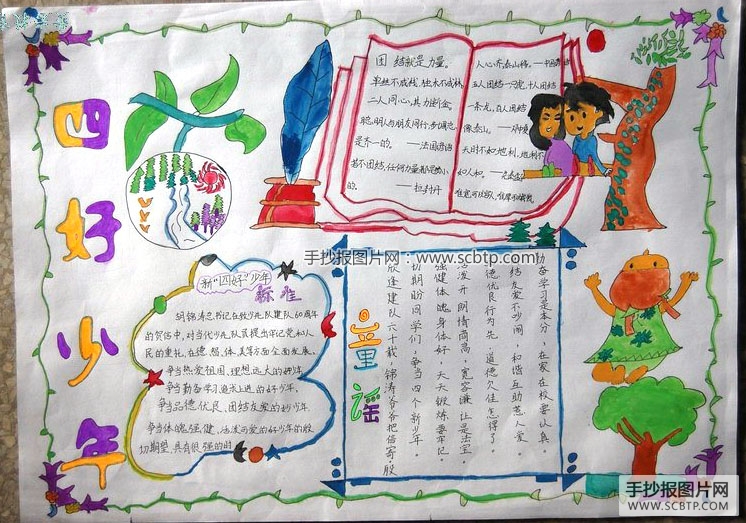 四好少年
团结就是力量。
单丝不成线,独木不成林
二人同心,其力断金。
是不一的。——法国谚语
若不团结,任何力量都是弱小
的。
人心齐泰山移。
五人团结一只虎,十人团结
一条龙,百人团结
像泰山。——邓中夏
天时不如地利,地利不
如人和。
新“四好”少年
标准
胡锦涛总书记在致少先队建队60周年
的贺信中,对当代少先队员提出牢记党和人
民的重托,在德、智、体、美等方面全面发展、
争当热爱祖国、理想远大的好少年
争当勤奋学习、追求上进的好少年、
争当品德优良、团结友爱的好少年
争当体魄强健、活泼可爱的好少年的殷
切期望,具有很强的时
童谣
勤奋学习是本分,在家在校要认真。
团结友爱不吵闹,和谐互助惹人爱。
品德优良行为先,道德久佳怎得了。
活泼开朗情商高,宽容谦让是法宝。
强健体魄身体好,天天锻炼要牢记。
切期盼同学们,争当四个新少年。
欣逢建队六十载,锦涛爷爷把信寄,殷
手抄报图片网:www.scbtp.com
手抄报图片网
WWW.SCBTP.COM